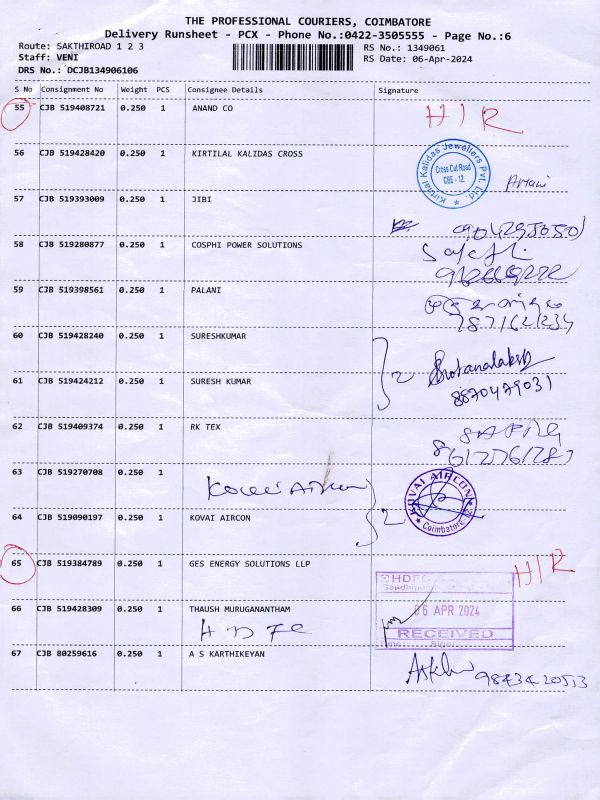 THE PROFESSIONAL COURIERS, COIMBATORE
Delivery Runsheet - PCX - Phone No.:0422-3505555 - Page No.:6
Route: SAKTHIROAD 1 2 3 RS No.: 1349061
Staff: VENI RS Date: 06-Apr-2024
DRS No.: DCJB134906106
S No Consignment No Weight PCS Consignee Details Signature
55 CJB 519408721 0.250 1 ANAND CO H/R
56 CJB 519428420 0.250 1 KIRTILAL KALIDAS CROSS Kirtilal Kalidas Jewellers Pvt. Ltd. Cross Cut Road CBE - 12.
57 CJB 519393009 0.250 1 JIBI
58 CJB 519280877 0.250 1 COSPHI POWER SOLUTIONS
59 CJB 519398561 0.250 1 PALANI
60 CJB 519428240 0.250 1 SURESHKUMAR
61 CJB 519424212 0.250 1 SURESH KUMAR 2 8870479031
62 CJB 519409374 0.250 1 RK TEX
63 CJB 519270708 0.250 1 Kovai Aircon
64 CJB 519090197 0.250 1 KOVAI AIRCON 2 KOVAI AIRCON Coimbatore
65 CJB 519384789 0.250 1 GES ENERGY SOLUTIONS LLP H/R
HDFC
66 CJB 519428309 0.250 1 THAUSH MURUGANANTHAM 06 APR 2024
HDFC RECEIVED
67 CJB 80259616 0.250 1 A S KARTHIKEYAN